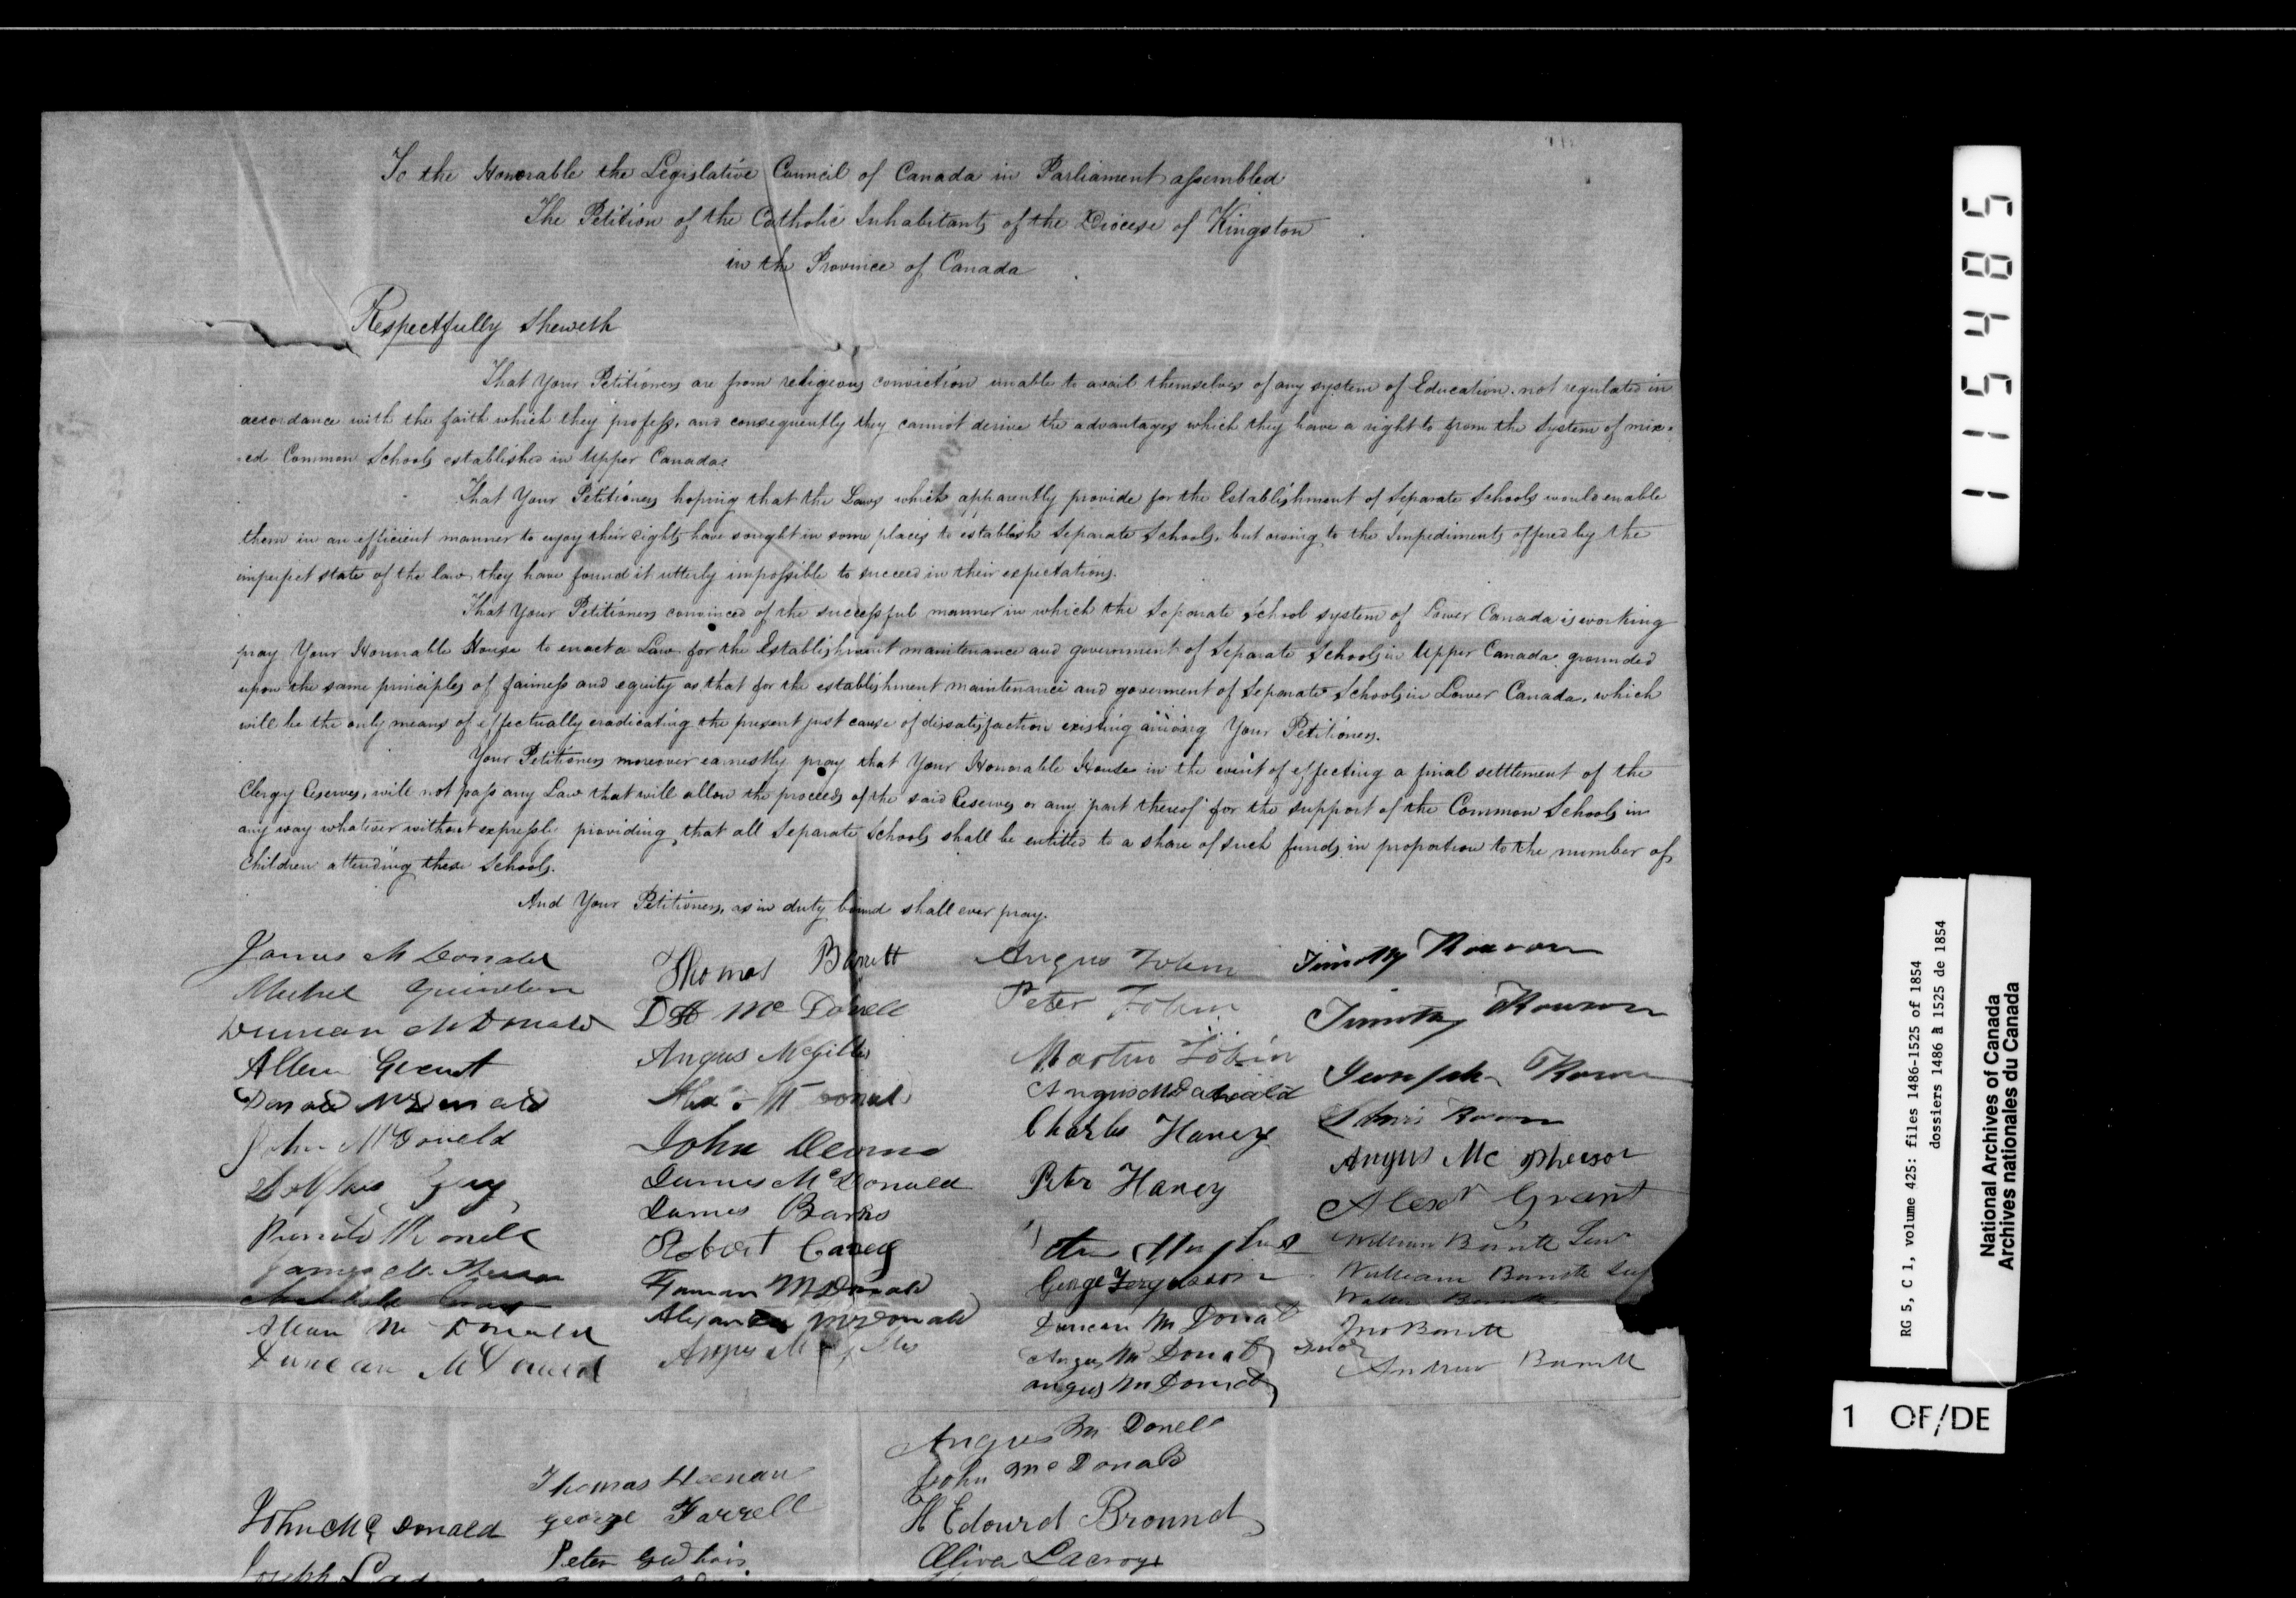 To the Honorable the Legislative Council of Canada in Parliament assembled
The Petition of the Catholic Inhabitants of the Diocese of Kingston
in the Province of Canada
Respectfully Sheweth
That Your Petitioners are from religious conviction unable to avail themselves of any system of Education. not regulated in
accordance with the faith which they profess, and consequently they cannot derive the advantages which they have a right to from the System of mix-
-ed Common Schools established in Upper Canada.
That Your Petitioners hoping that the Laws which apparently provide for the Establishment of Separate Schools would enable
them in an efficient manner to enjoy their rights have sought in some places to establish Separate Schools, but owing to the Impediments offered by the
imperfect state of the law, they have found it utterly impossible to succeed in their expectations.
That Your Petitioners convinced of the successful manner in which the Separate School system of Lower Canada is working
pray Your Honorable House to enact a Law for the Establishment maintenance and government of Separate Schools in Upper Canada grounded
upon the same principles of fairness and equity as that for the establishment maintenance and goverment of Separate Schools in Lower Canada, which
will be the only means of effectually eradicating the present just cause of dissatisfaction existing among Your Petitioners.
Your Petitioners moreover earnestly pray that Your Honorable House in the event of effecting a final settlement of the
Clergy Reserves, will not pass any Law that will allow the proceeds of the said Reserves or any part thereof for the support of the Common Schools in
any way whatever without expressly providing that all Separate Schools shall be entitled to a share of such funds in proportion to the number of
Children attending these Schools.
And Your Petitioners, as in duty bound shall ever pray.
James McDonald
Duncan McDonald
Allan Grant
Donald McDonald
John McDonald
Allan Mc Donald
Duncan McDonald
Thomas Barrett
Angus McGillis
John
James McDonald
James Barks
Robert Carey
McDonald
Alexander McDonald
Angus
Angus
Peter
Martin
Angus McDonald
Charles Haney
Peter Haney
George Fergusson
Duncan Mc Donald
Angus Mc Donald
Angus Mc Donald
Timothy
Timothy
Joseph
Angus Mc Pherson
Alexr Grant
William Barrett Senr
William Barrett
Jno Barrett
Andrew Barrett
Angus Mc Donell
John Mc Donald
H Edourd Bround
Oliver Lacroyx
Thomas Heenan
george Farrell
Peter
John Mc Donald
Joseph
115485
RG 5, C 1, volume 425: files 1486-1525 of 1854
dossiers 1486 à 1525 de 1854
National Archives of Canada
Archives nationales du Canada
1 OF/DE